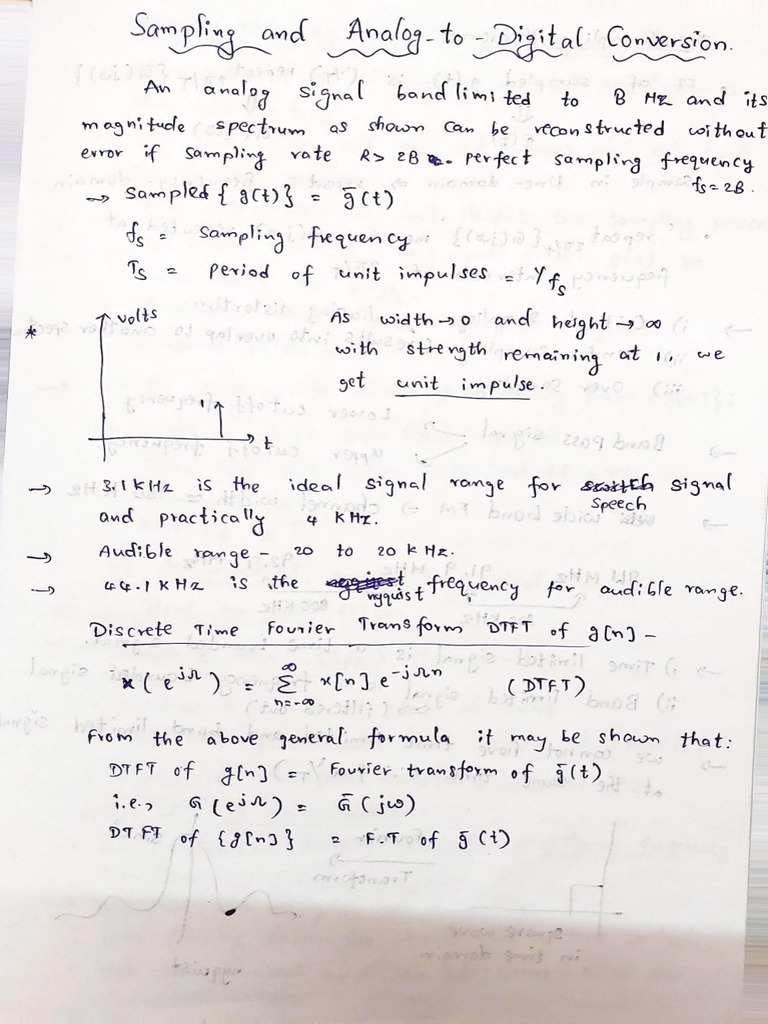 Sampling and Analog-to-Digital Conversion.
An analog signal bandlimited to B Hz and its
magnitude spectrum as shown can be reconstructed without
error if sampling rate R> 2B. Perfect sampling frequency
fs = 2B.
→ Sampled { g(t)} = ḡ(t)
fs = Sampling frequency
Ts = Period of unit impulses = 1/fs
* volts
As width → 0 and height → ∞
with strength remaining at 1, we
get unit impulse.
1
t
→ 3.1 kHz is the ideal signal range for signal
Speech
and practically 4 kHz.
→ Audible range - 20 to 20 kHz.
→ 44.1 kHz is the frequency for audible range.
nyquist
Discrete Time Fourier Transform DTFT of g[n] -
X(e^jΩ) = ∞ Σ n=-∞ x[n] e^-jΩn (DTFT)
From the above general formula it may be shown that:
DTFT of g[n] = Fourier transform of ḡ(t)
i.e., G(e^jΩ) = Ḡ(jω)
DTFT of {g[n]} = F.T of ḡ(t)